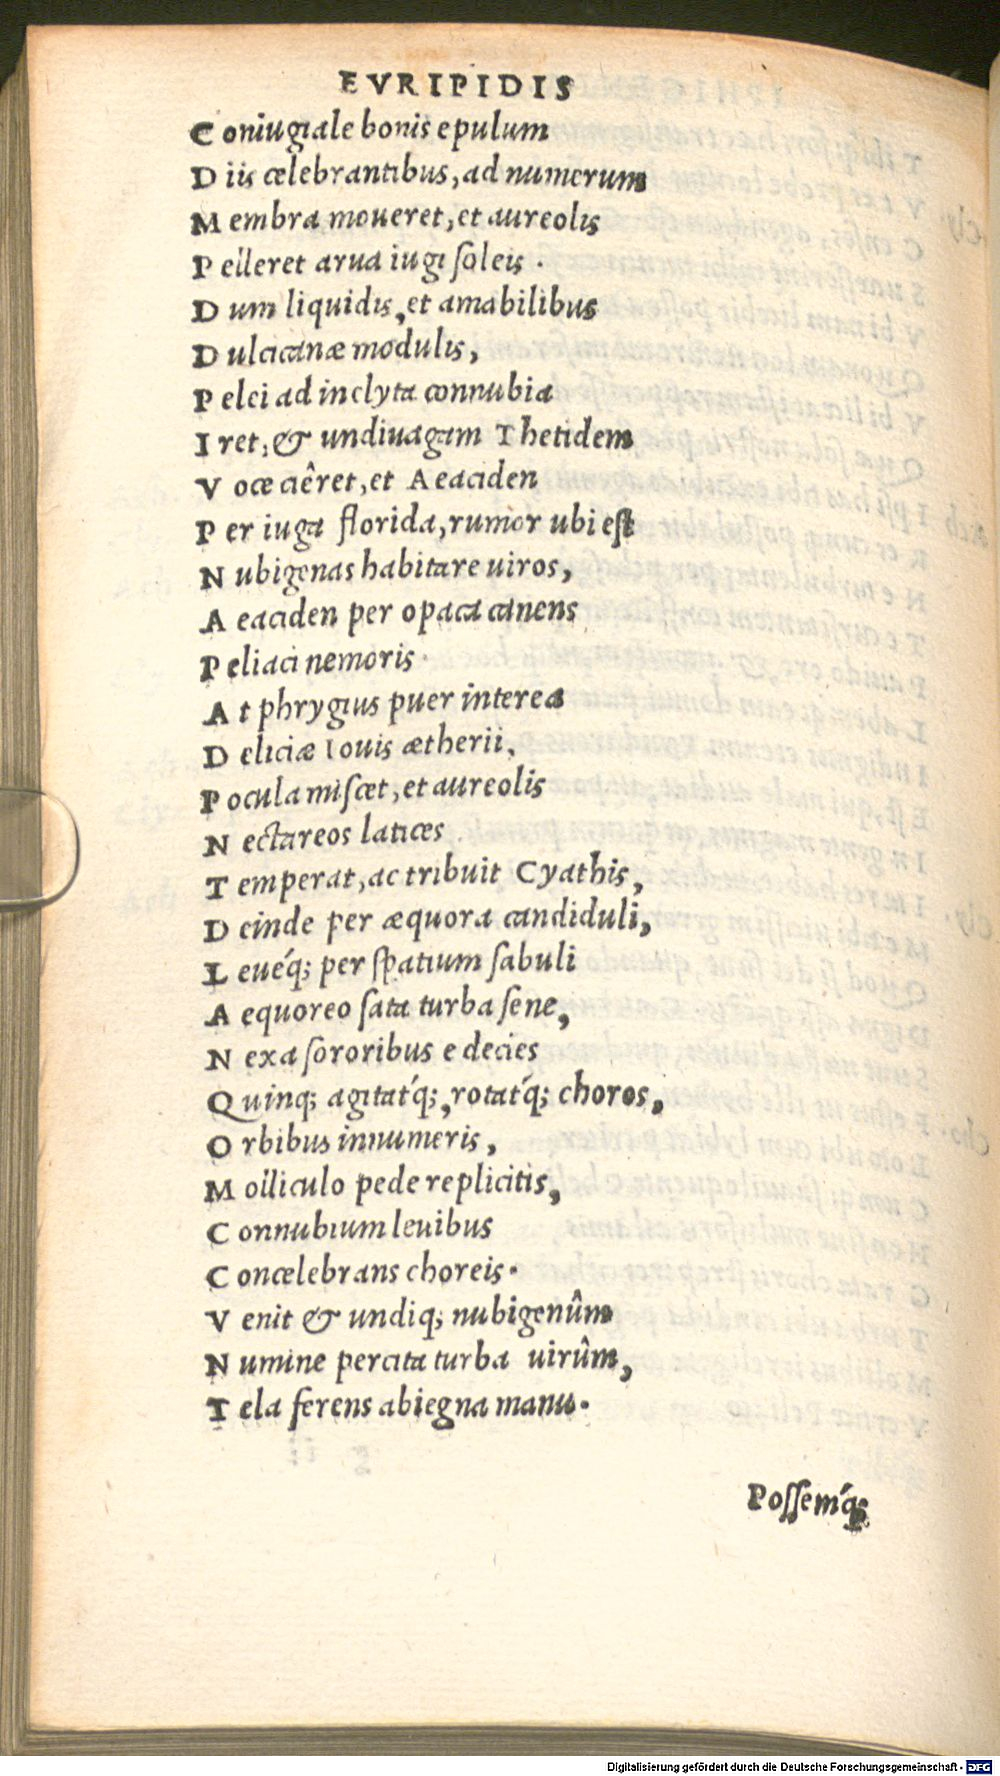 EVRIPIDIS
Coniugiale bonis epulum
Diis celebrantibus, ad numerum
Membra moueret, et aureolis
Pelleret arua iugi soleis.
Dum liquidis, et amabilibus
Dulcicanæ modulis,
Pelei ad inclyta connubia
Iret, & undiuagam Thetidem
Voce ciêret, et Aeaciden
Per iuga florida, rumor ubi est
Nubigenas habitare uiros,
Aeaciden per opaca canens
Peliaci nemoris.
At phrygius puer interea
Deliciæ Iouis ætherii,
Pocula miscet, et aureolis
Nectareos latices
Temperat, ac tribuit Cyathis,
Deinde per æquora candiduli,
Leuéq; per spatium sabuli
Aequoreo sata turba sene,
Nexa sororibus e decies
Quinq; agitatq́;, rotatq́; choros,
Orbibus innumeris,
Molliculo pede replicitis,
Connubium leuibus
Concelebrans choreis.
Venit & undiq; nubigenûm
Numine percita turba uirûm,
Tela ferens abiegna manu.
Possemq́;
Digitalisierung gefördert durch die Deutsche Forschungsgemeinschaft - DFG